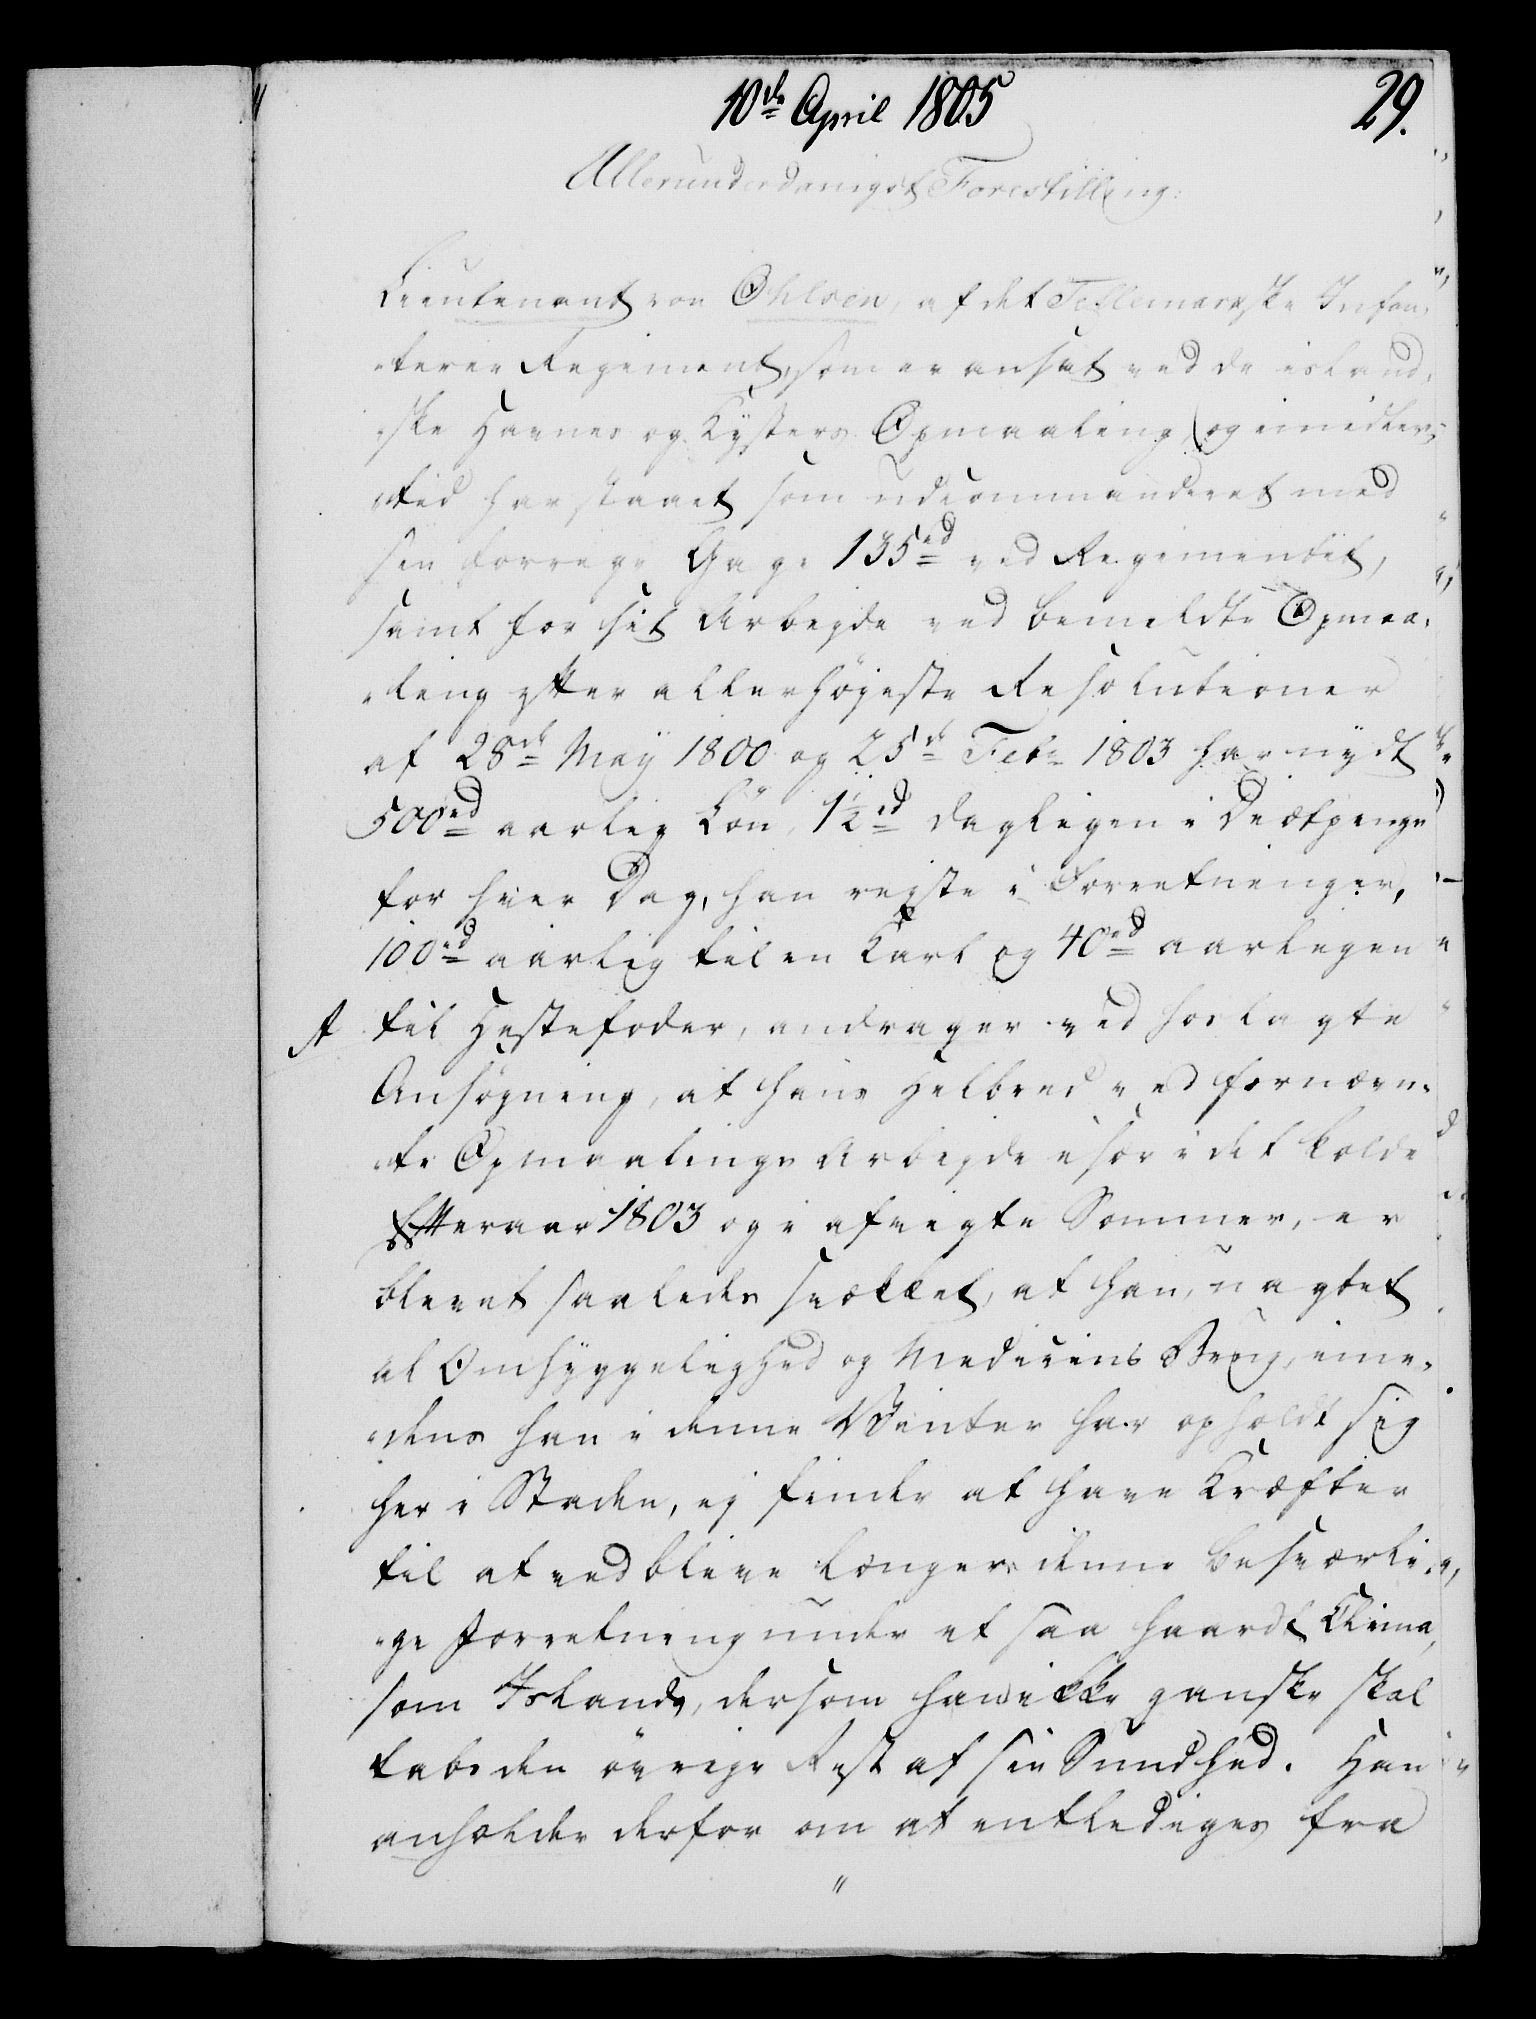 10de April 1805
29.
Allerunderdanigst Forestilling.
Lieutenant von Ohlsen, af det Tellemarkske Infan-
terie Regiment, som er ansat ved de island-
ske Havnes og Kysters Opmaaling, (og imidler-
tid har staaet som udcommanderet med
sin forrige Gage 135rd ved Regimentet,
samt for sit Arbejde ved bemeldte Opmaa-
ling efter allerhøjeste Resolutioner
af 28de Maÿ 1800 og 25de Febr 1803 har nydt
500rd aarlig Løn, 1½rd dagligen i Diætpenge
for hver Dag, han rejste i Forretninger,
100rd aarlig til en Karl og 40rd aarligen
A til Hestefoder, andrager ved hoslagte
Ansøgning, at hans Helbred ved fornævn-
te Opmaalings Arbejde især i det kolde
Efteraar 1803 og i afvigte Sommer, er
blevet saaledes svækket, at han, uagtet
al Omhyggelighed og Medicins Brug, ime-
dens han i denne Vinter har opholdt sig
her i Staden, ej finder at have Kræfter
til at vedblive længere denne besværli-
ge Forretning under et saa haardt Clima,
som Islands, dersom han ikke ganske skal
tabe den øvrige Rest af sin Sundhed. Han
anholder derfor om at entlediges fra